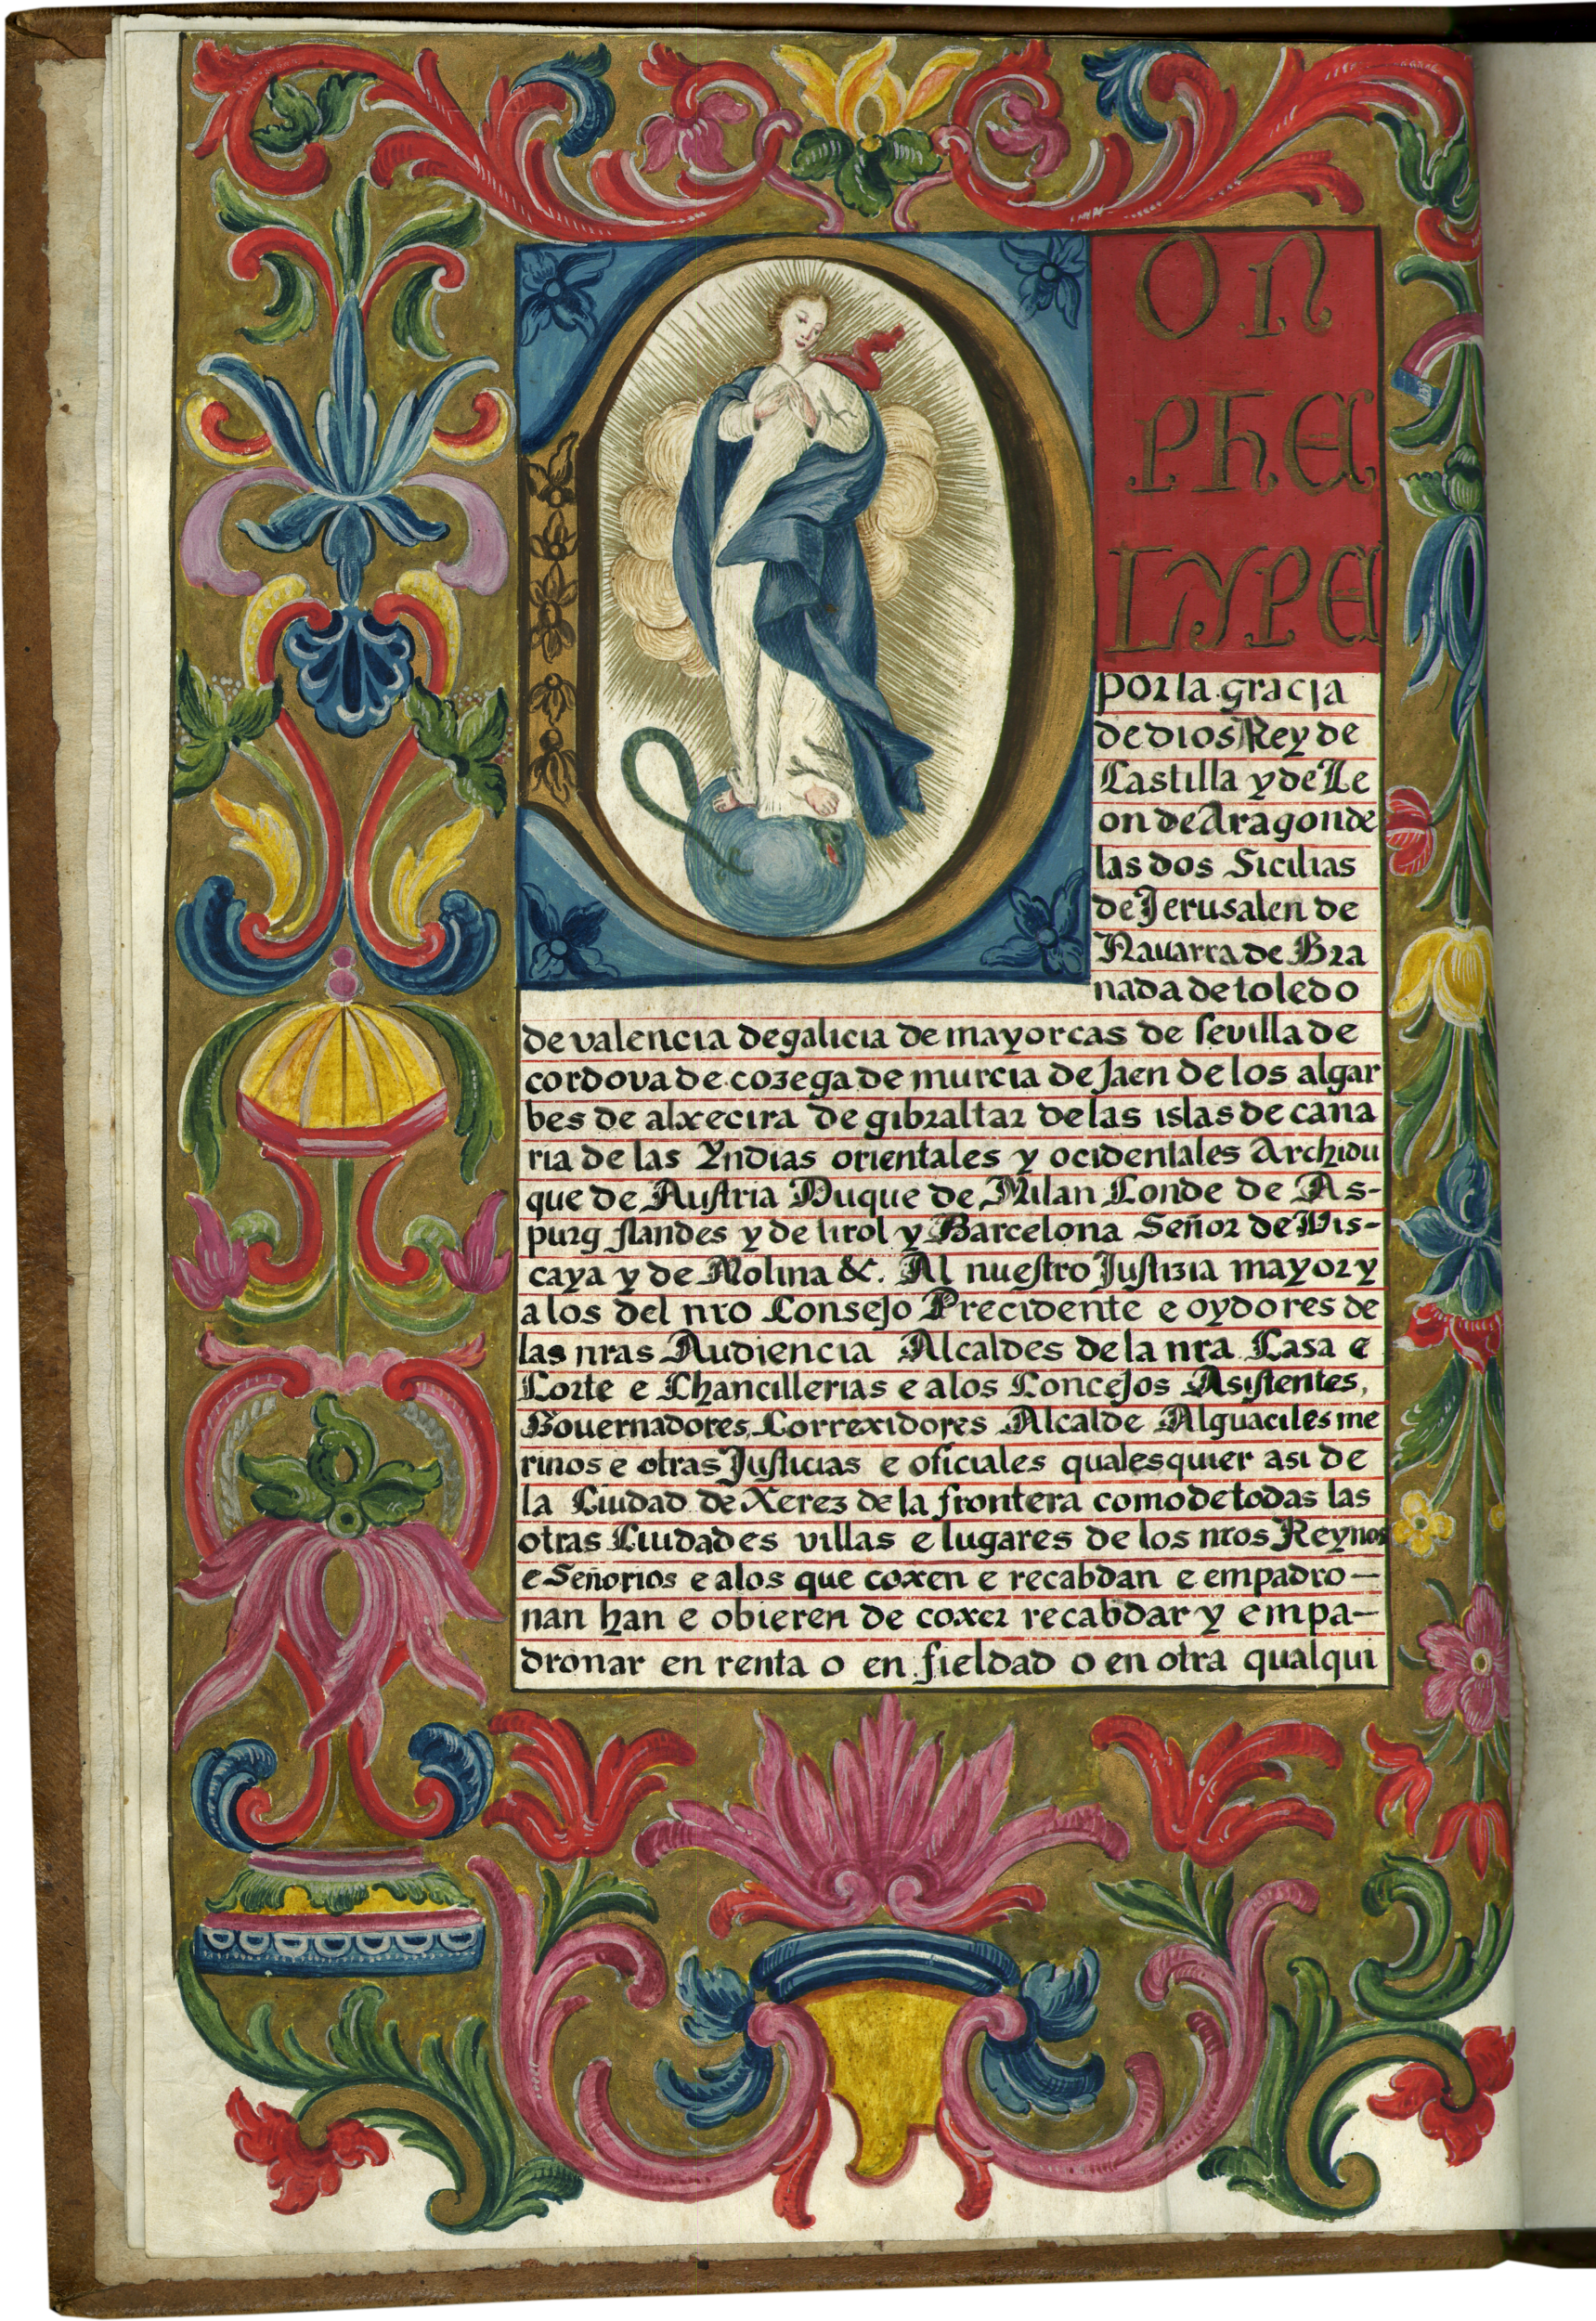 D
ON
PHE
LYPE
por la gracja
de dios Rey de
Castilla y de Le
on de Aragon de
las dos Sicilias
de Jerusalen de
Nauarra de Gra
nada de toledo
de valencia de galicia de mayorcas de sevilla de
cordova de cozega de murcia de Jaen de los algar
bes de alxecira de gibraltar de las islas de cana
ria de las Yndias orientales y ocidentales Archidu
que de Austria Duque de Milan Conde de As-
purg flandes y de tirol y Barcelona Señor de Vis-
caya y de Molina &c. Al nuestro Justizia mayor y
a los del nro Consejo Precidente e oydores de
las nras Audiencia Alcaldes de la nra Casa e
Corte e Chancillerias e a los Concejos Asistentes,
Gouernadores, Correxidores Alcalde Alguaciles me
rinos e otras Justicias e oficiales qualesquier asi de
la Ciudad de Xerez de la frontera como de todas las
otras Ciudades villas e lugares de los nros Reynos
e Señorios e a los que coxen e recabdan e empadro-
nan han e obieren de coxer recabdar y empa-
dronar en renta o en fieldad o en otra qualqui